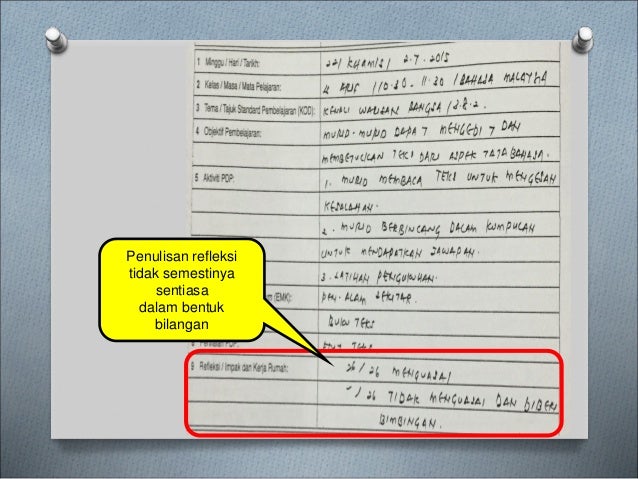 1 Minggu / Hari / Tarikh: 22 / KHAMIS / 2.7.2015
2 Kelas / Masa / Mata Pelajaran: 4 / 10.30 - 11.30 / BAHASA MALAYSIA
3 Tema / Tajuk Standard Pembelajaran (KOD): KENALI WARISAN BANGSA / 3.8.2.
4 Objektif Pembelajaran: MURID-MURID DAPAT MENGEDIT DAN
MEMBETULKAN TEKS DARI ASPEK TATABAHASA.
5 Aktiviti PDP: 1. MURID MEMBACA TEKS UNTUK MENGESAN
KESALAHAN.
2. MURID BERBINCANG DALAM KUMPULAN
UNTUK MENDAPATKAN JAWAPAN.
3. LATIHAN PENGUKUHAN.
(EMK): ALAM SEKITAR.
BUKU TEKS
8 PDP: TEKS
9 Refleksi / Impak dan Kerja Rumah: 26/26 MENGUASAI
/26 TIDAK MENGUASAI DAN DIBERI
BIMBINGAN.
Penulisan refleksi
tidak semestinya
sentiasa
dalam bentuk
bilangan